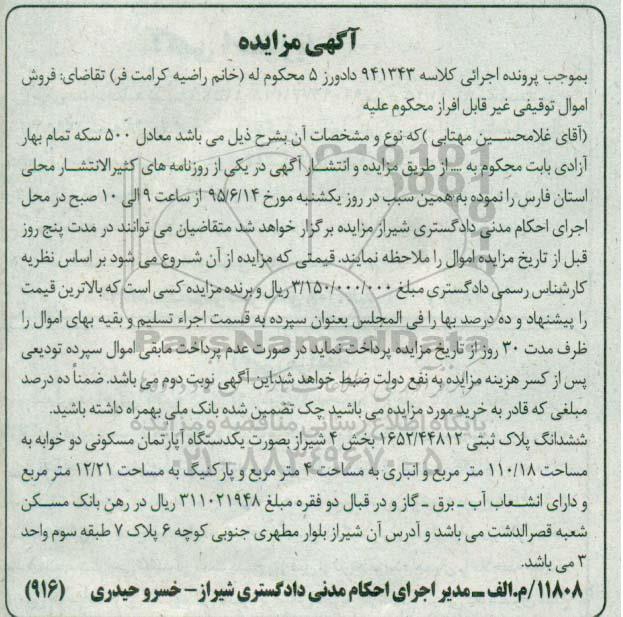 آگهی مزایده
بموجب پرونده اجرائی کلاسه ۹۴۱۳۴۳ دادورز ۵ محکوم له (خانم راضیه کرامت فر) تقاضای: فروش
اموال توقیفی غیر قابل افراز محکوم علیه
(آقای غلامحسین مهتابی )که نوع و مشخصات آن بشرح ذیل می باشد معادل ۵۰۰ سکه تمام بهار
آزادی بابت محکوم به .... از طریق مزایده و انتشار آگهی در یکی از روزنامه های کثیرالانتشار محلی
استان فارس را نموده به همین سبب در روز یکشنبه مورخ ۹۵/۶/۱۴ از ساعت ۹ الی ۱۰ صبح در محل
اجرای احکام مدنی دادگستری شیراز مزایده برگزار خواهد شد متقاضیان می توانند در مدت پنج روز
قبل از تاریخ مزایده اموال را ملاحظه نمایند. قیمتی که مزایده از آن شروع می شود بر اساس نظریه
کارشناس رسمی دادگستری مبلغ ۳/۱۵۰/۰۰۰/۰۰۰ ریال و برنده مزایده کسی است که بالاترین قیمت
را پیشنهاد و ده درصد بها را فی المجلس بعنوان سپرده به قسمت اجراء تسلیم و بقیه بهای اموال را
ظرف مدت ۳۰ روز از تاریخ مزایده پرداخت نماید در صورت عدم پرداخت مابقی اموال سپرده تودیعی
پس از کسر هزینه مزایده به نفع دولت ضبط خواهد شد.این آگهی نوبت دوم می باشد. ضمناً ده درصد
مبلغی که قادر به خرید مورد مزایده می باشید چک تضمین شده بانک ملی بهمراه داشته باشید.
ششدانگ پلاک ثبتی ۱۶۵۲/۴۴۸۱۲ بخش ۴ شیراز بصورت یکدستگاه آپارتمان مسکونی دو خوابه به
مساحت ۱۱۰/۱۸ متر مربع و انباری به مساحت ۴ متر مربع و پارکنیگ به مساحت ۱۲/۲۱ متر مربع
و دارای انشعاب آب ـ برق ـ گاز و در قبال دو فقره مبلغ ۳۱۱۰۲۱۹۴۸ ریال در رهن بانک مسکن
شعبه قصرالدشت می باشد و آدرس آن شیراز بلوار مطهری جنوبی کوچه ۶ پلاک ۷ طبقه سوم واحد
۳ می باشد.
۱۱۸۰۸/م.الف ـ مدیر اجرای احکام مدنی دادگستری شیراز - خسرو حیدری (۹۱۶)
ParsNamadData
پایگاه اطلاع رسانی مناقصه و مزایده
۰۲۱-۸۸۳۴۹۶۷۰-۵